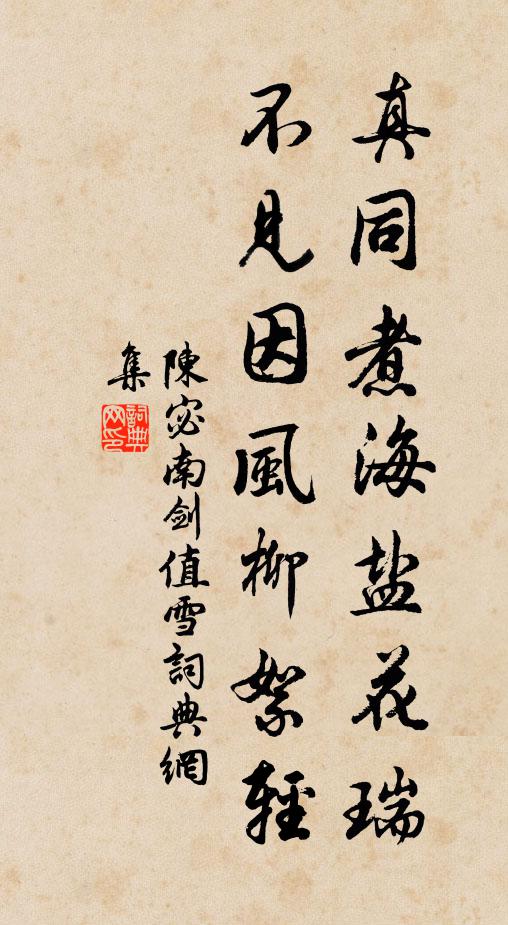 真同煮海盐花瑞
不见因風柳絮輕
陳宓南剑值雪詞典網
集
詞典网印